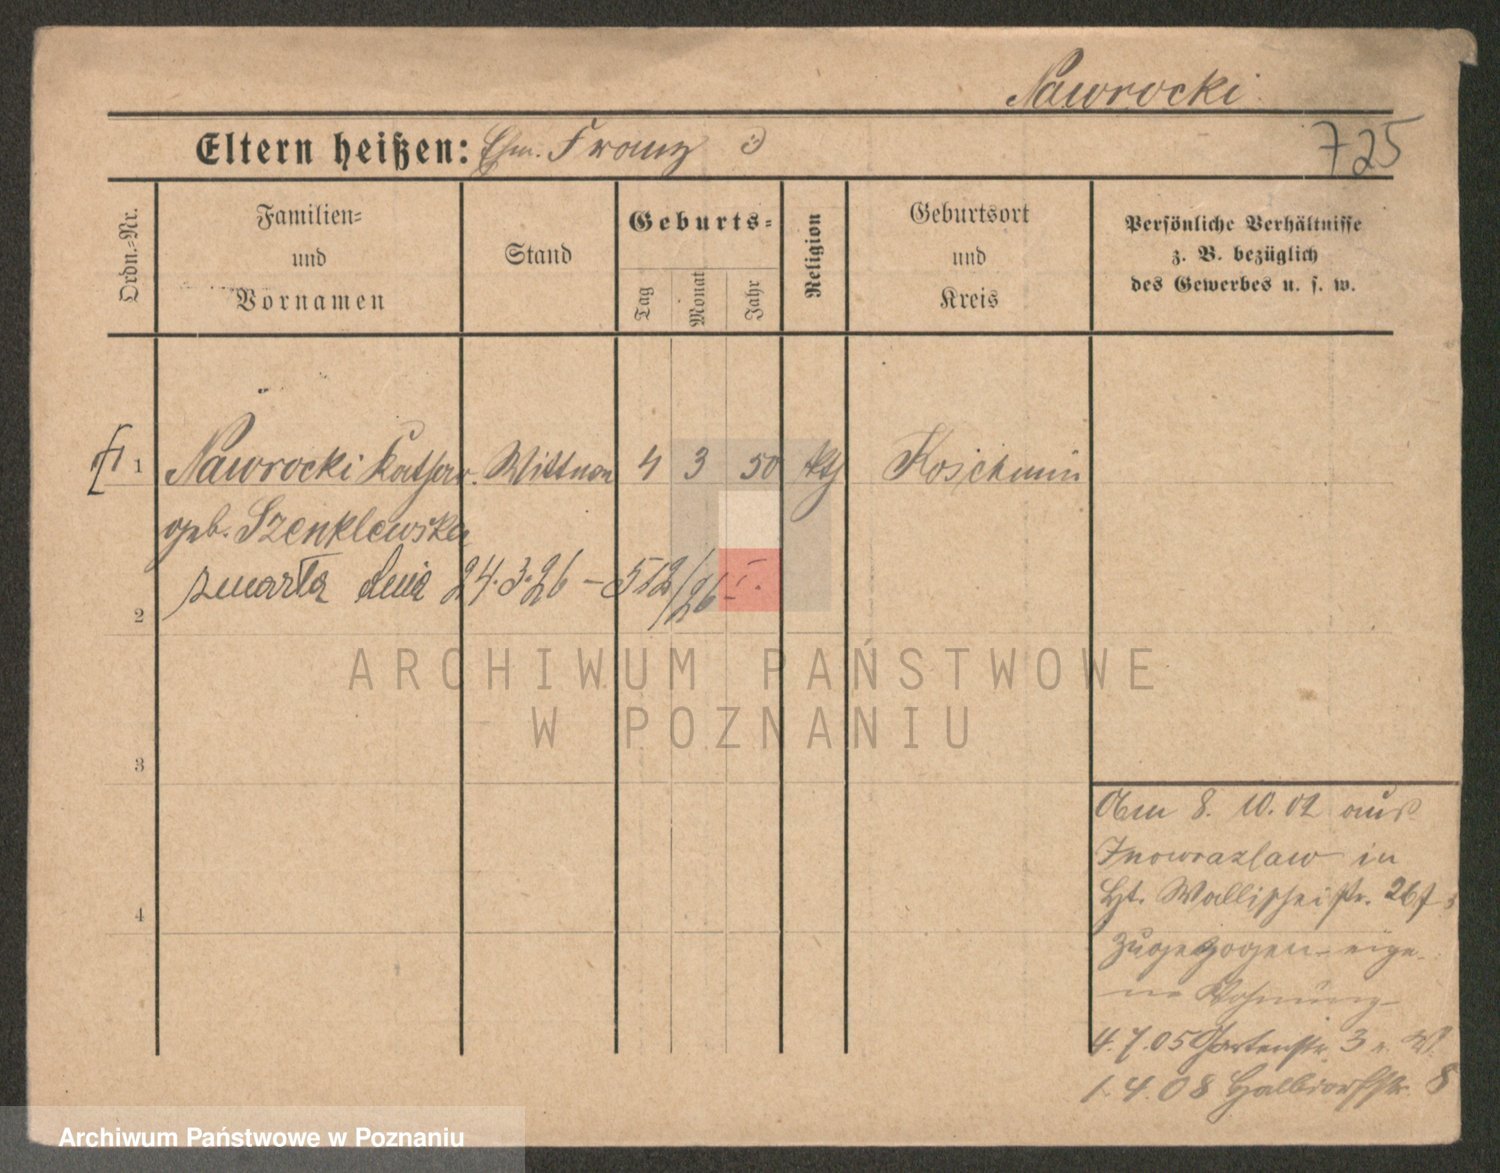 Nawrocki
Eltern heißen: Ehm. Franz
725
Ordn.=Nr.
Familien=
und
Vornamen
Stand
Geburts=
Tag
Monat
Jahr
Religion
Geburtsort
und
Kreis
Persönliche Verhältnisse
z. B. bezüglich
des Gewerbes u. s. w.
1 Nawrocki Kathar. Wittwe 4 3 50 kth Koschmin
geb. Szenklewska
zmarła dnia 24.3.26 – 512/26 I.
2
3
4
ARCHIWUM PAŃSTWOWE
W POZNANIU
Am 8. 10. 02 aus
Inowrazlaw in
Wallischeistr. 26
zugezogen – eige-
ne Wohnung
4. 7. 05 Gartenstr. 3
1. 4. 08 Halbdorfstr. 8
Archiwum Państwowe w Poznaniu